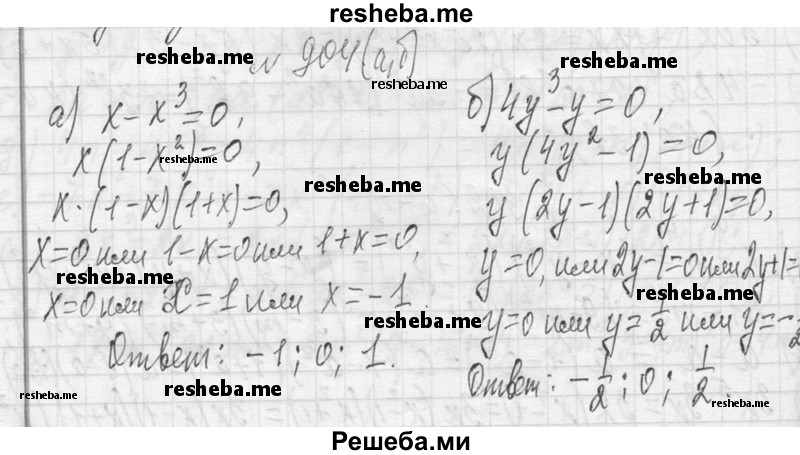 resheba.me
№ 904(а,б)
а) x - x³ = 0,
x(1 - x²) = 0,
x·(1 - x)(1 + x) = 0,
x = 0 или 1 - x = 0 или 1 + x = 0,
x = 0 или x = 1 или x = -1.
Ответ: -1; 0; 1.
б) 4y³ - y = 0,
y(4y² - 1) = 0,
y(2y - 1)(2y + 1) = 0,
y = 0, или 2y - 1 = 0 или 2y + 1 =
y = 0 или y = 1/2 или y = -1/2
Ответ: -1/2; 0; 1/2.
resheba.me
resheba.me
resheba.me
resheba.me
resheba.me
resheba.me
resheba.me
resheba.me
resheba.me
resheba.me
resheba.me
resheba.me
Решеба.ми